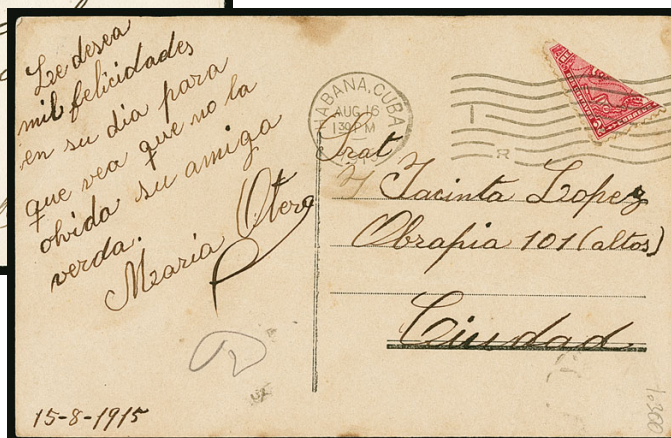 Le desea
mil felicidades
en su dia para
que vea que no la
olvida su amiga
verda.
Maria Otero
15-8-1915
HABANA, CUBA
AUG 16
130 PM
Jacinta Lopez
Obrapia 101 (altos)
Ciudad.
1.300